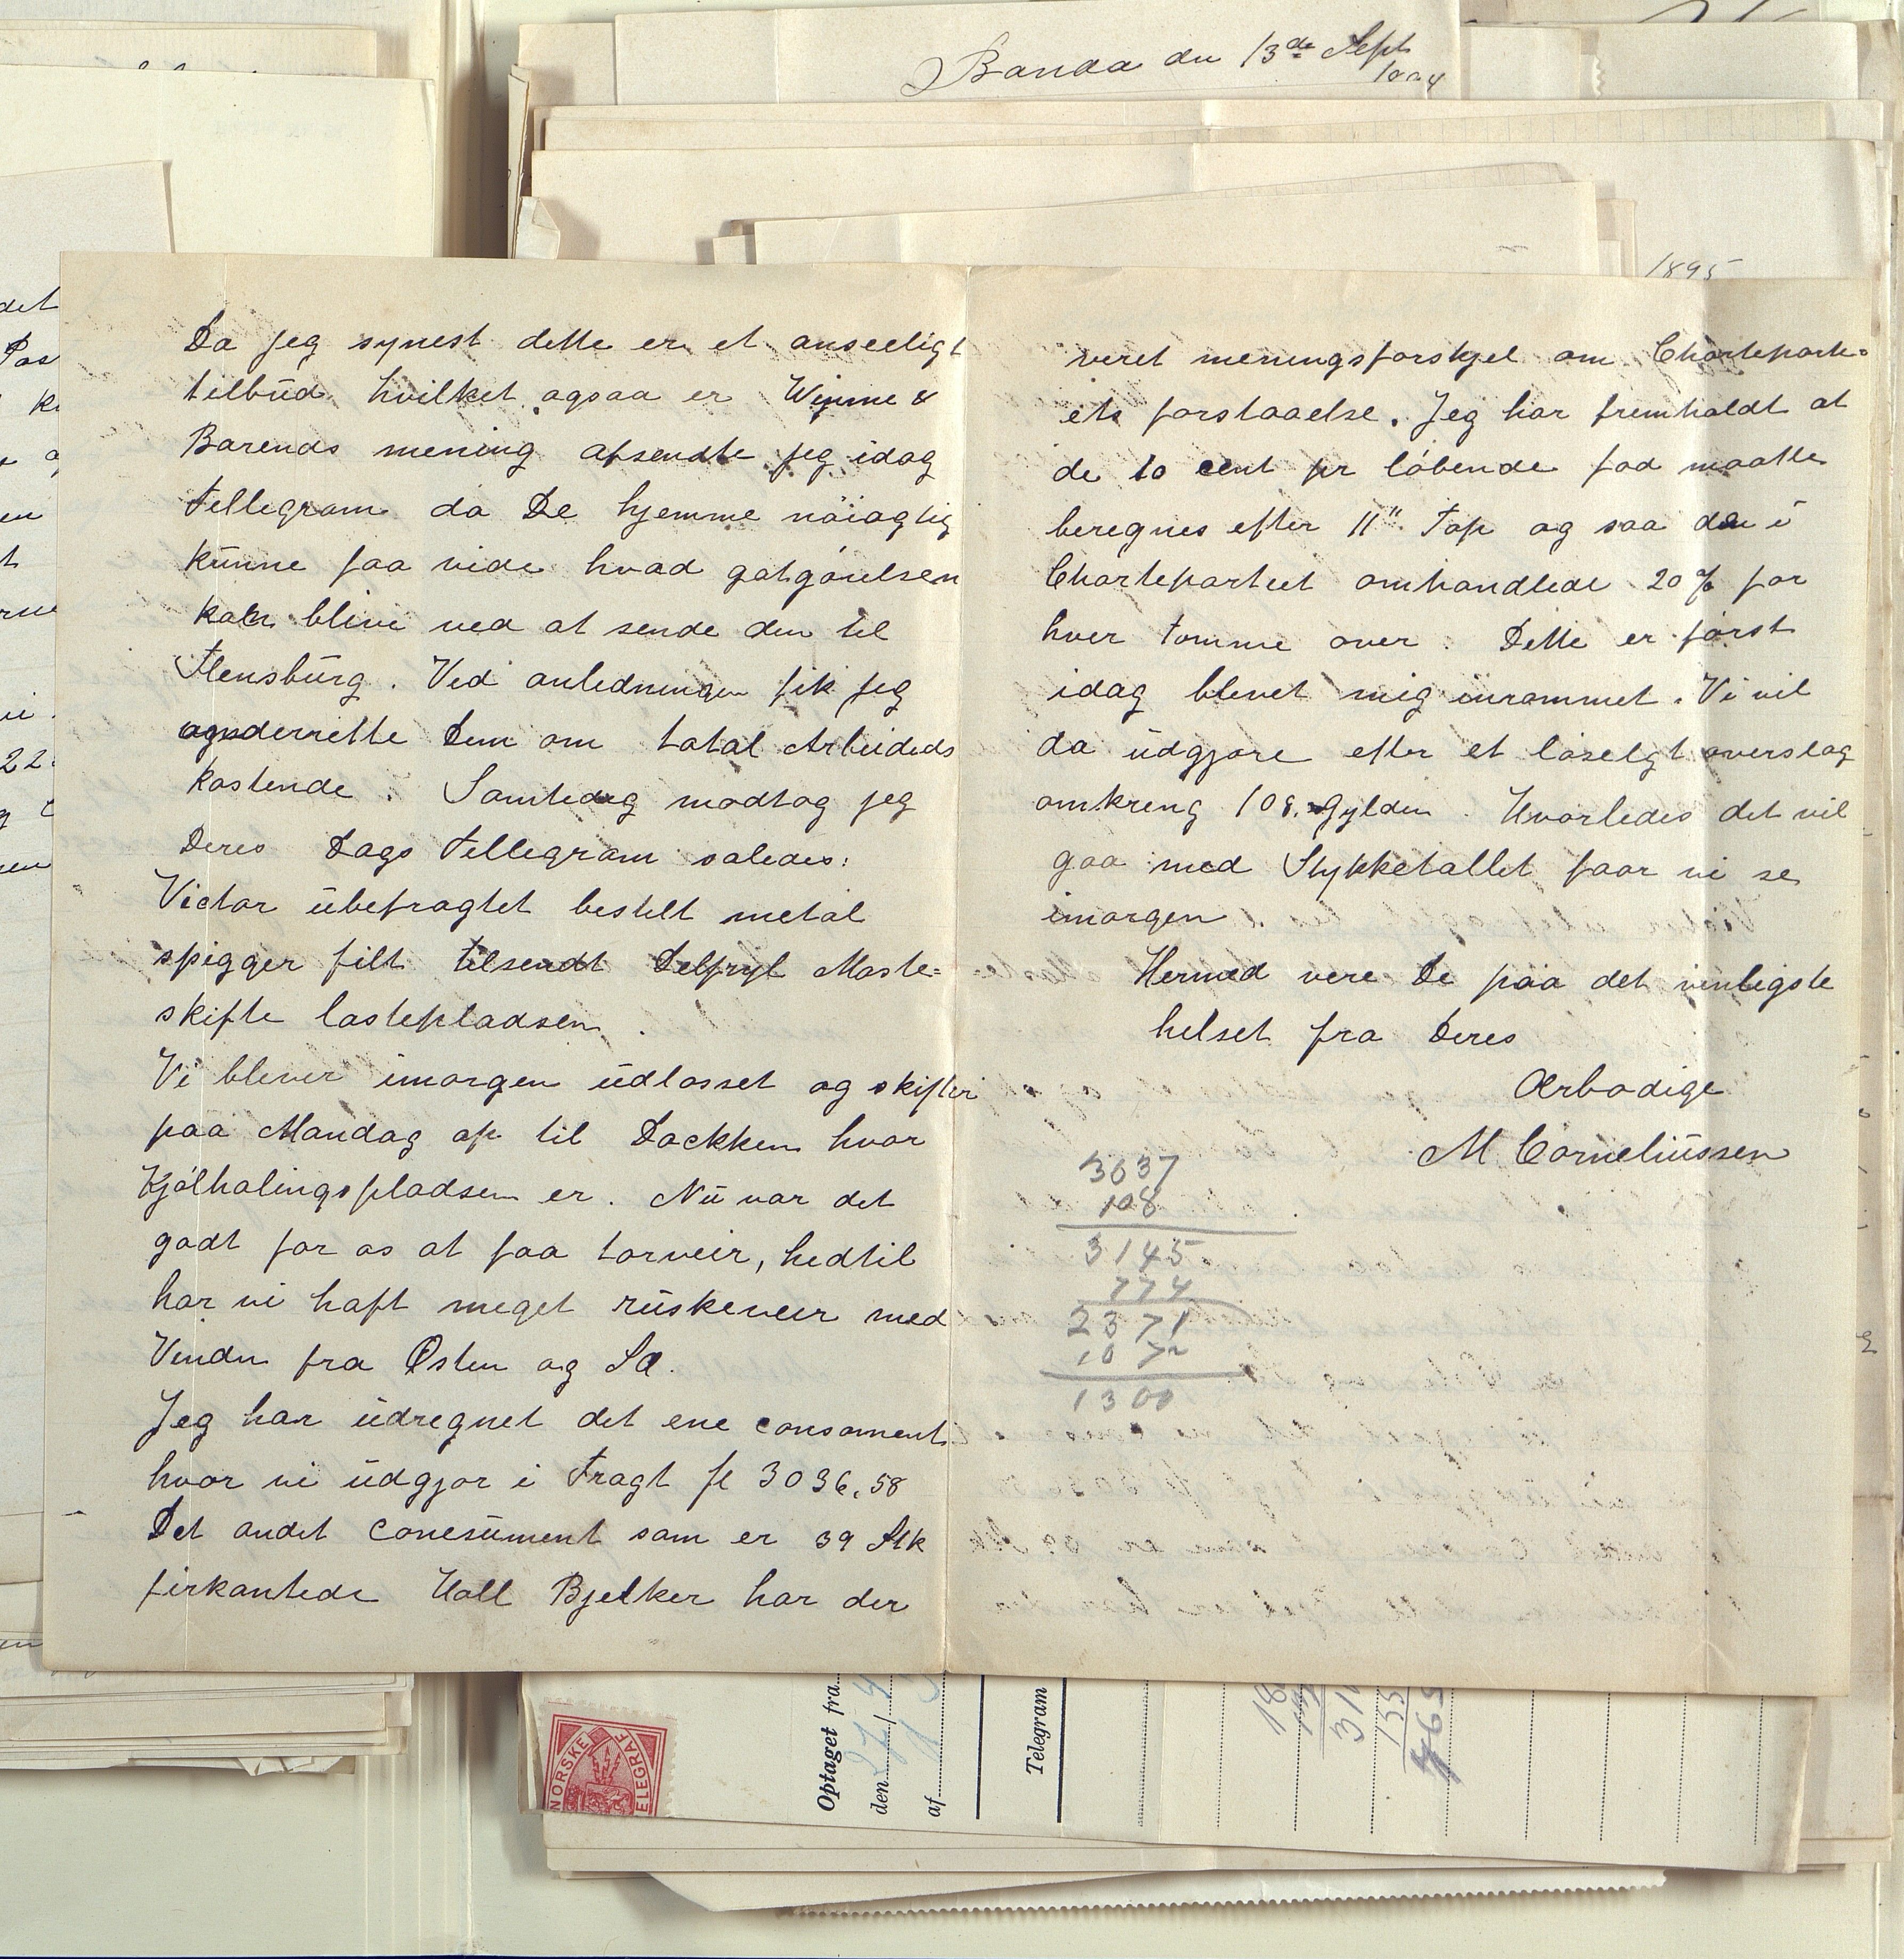 Banda den 13de Sept
1895
Da jeg synest dette er et anseeligt
tilbud hvilket ogsaa er Wynne &
Barends mening afsendte jeg idag
Tellegram da De hjemme nöiagtig
kunne faa vide hvad gotgörelsen
kan blive ved at sende den til
Flensburg. Ved anledningen fik jeg
underrette Dem om total Arbeideds
kostende. Samtedag modtog jeg
Deres Dags Tellegram saledes:
Victor ubefragtet bestilt metal
spigger filt tilsendt Delfzyl Maste=
skifte lastepladsen.
Vi blever imorgen udlosset og skifter
paa Mandag op til Dockken hvor
Kjölhalingspladsen er. Nu var det
godt for os at faa torveir, hedtil
har vi haft meget ruskeveir med
Vindn fra Östen og Sö.
Jeg har udregnet det ene consoment
hvor vi udgjor i Fragt fl 3036,58
Det andet Conesument som er 39 Stk
firkantede Holl Bjelker har der
veret meningsforskjel om Charteparti=
ets forstaaelse. Jeg har fremholdt at
de 10 cent pr löbende fod maatte
beregnes efter 11" Top og saa den i
Chartepartiet omhandlede 20% for
hver Tomme over. Dette er först
idag blevet mig inrommet. Vi vil
da udgjore efter et löseligt overslag
omkreng 108, Gylden. Hvorledes det vil
gaa med Stykketallet faar vi se
imorgen
Hermed vere De paa det venligste
helset fra Deres
Ærbodige
M Corneliussen
3037
108
3145
774
2371
107
1300
Optaget fra
den
af
Telegram
NORSKE
TELEGRAF